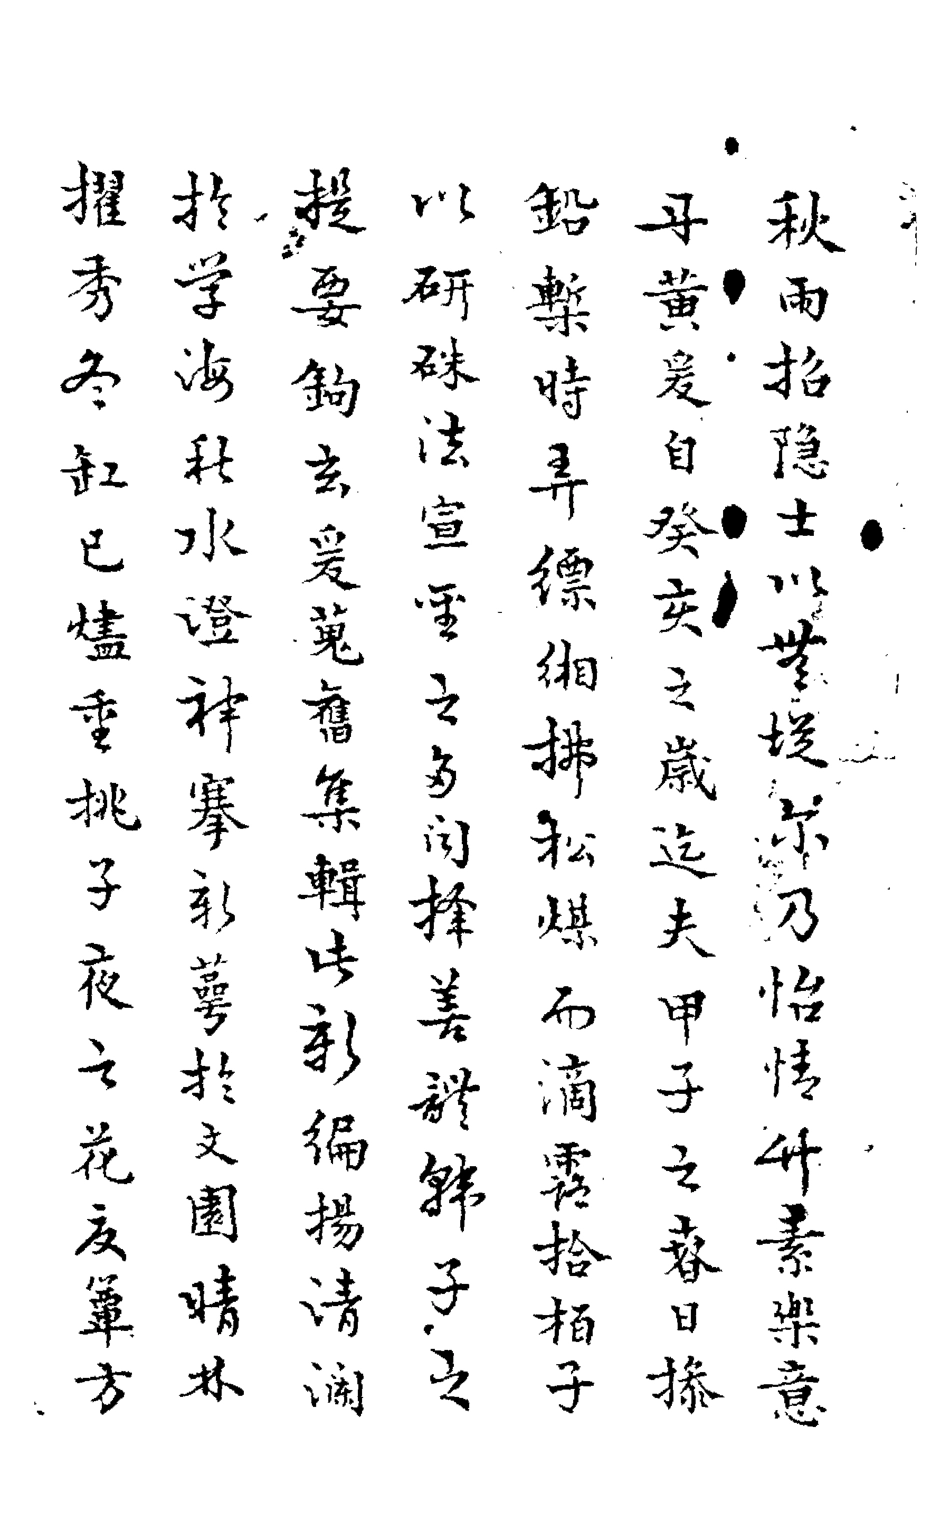 秋雨招隐士以無從尔乃怡情竹素樂意
丹黄爰自癸亥之歳迄夫甲子之春日搽
鉛槧時弄縹緗拂松煤而滴露拾栢子
以研硃法宣聖之多闻擇善體韩子之
提要鉤玄爰蒐舊集輯此新編揚清瀾
於学海秋水澄神搴新萼於文園晴林
擢秀冬缸已燼重挑子夜之花夜簟方